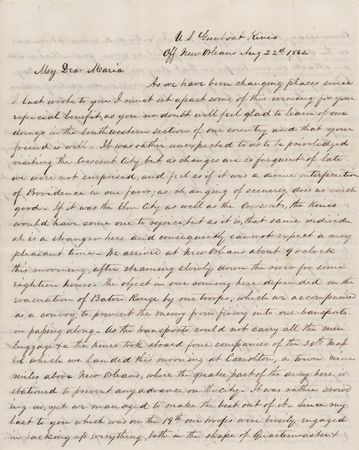 U.S. Gunboat Kineo
Off New Orleans Aug 22nd 1862
My Dear Maria
As we have been changing places since
I last wrote to you I must set apart some of this evening for your
especial benefit, as you no doubt will feel glad to learn of our
doings in the southwestern section of our country, and that your
friend is well. It was rather unexpected to us to be priviledged
visiting the Crescent City, but as changes are so frequent of late
we were not surprised, and feel as if it was a divine interposition
of Providence in our favor, as changing of scenery does us much
good. If it was the Elm City as well as the Crescent, the Kineo
would have some one to rejoice, but as it is, that same individu
al is a stranger here and consequently cannot expect a very
pleasant time. We arrived at New Orleans about 9 oclock
this morning, after steaming slowly down the river for some
eighteen hours. The object in our coming here depended on the
evacuation of Baton Rouge by our troops, which we accompanied
as a convoy to prevent the enemy from firing into our transports
in passing along. As the transports could not carry all the men
baggage &c the Kineo took aboard four companies of the 30th Mass
on which we landed this morning at Carrolton, a town nine
miles above New Orleans, where the greater part of the army here is
stationed to prevent any advance on the City. It was rather crowd
ing us, yet we managed to make the best out of it. Since my
last to you which was on the 19th our troops were busily engaged
in packing up everything, both in the shape of Quartermasters